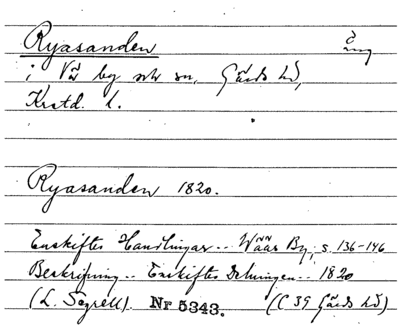 Ryasanden
i Vä by och sn, Gärds hd,
Krstd. l.
Ryasanden 1820.
Enskiftes Handlingar .. Wää By; s. 136-146
Beskrifning .. Enskiftes Delningen .. 1820
(L. Segrell). Nr 5343. (C 39 Gärds hd)